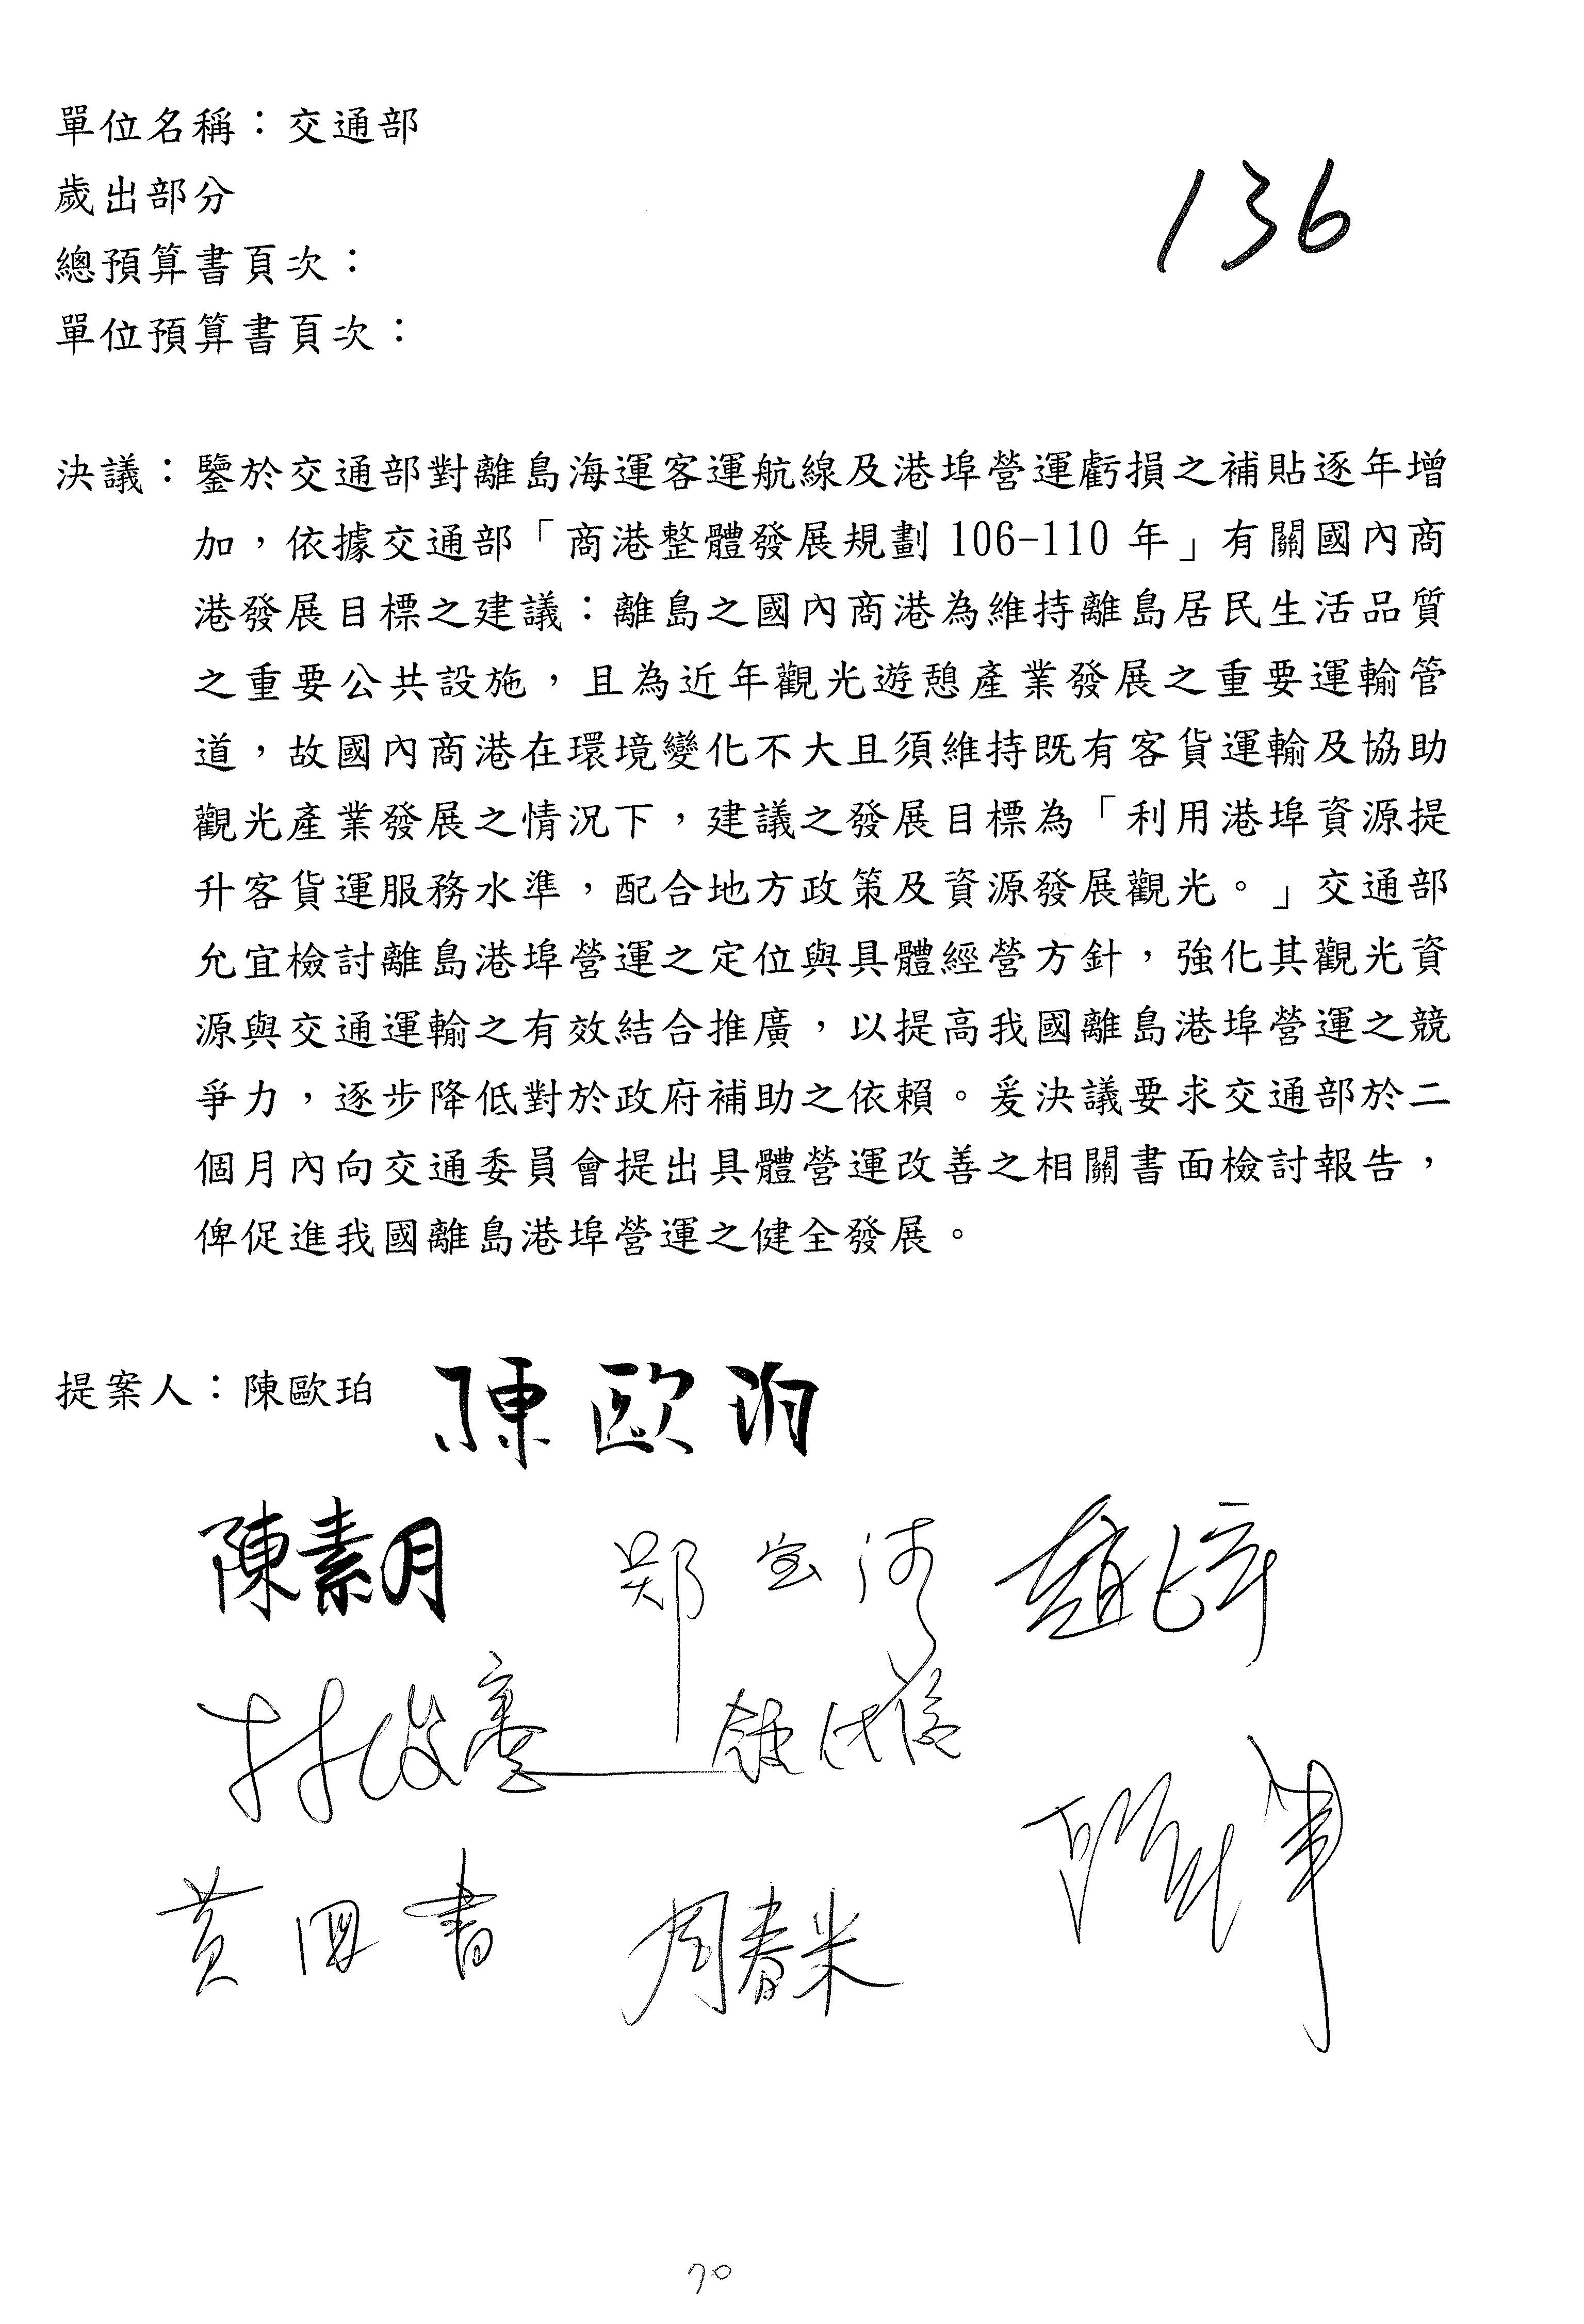 單位名稱：交通部
136
歲出部分
總預算書頁次：
單位預算書頁次：
決議：鑒於交通部對離島海運客運航線及港埠營運虧損之補貼逐年增
加，依據交通部「商港整體發展規劃106-110年」有關國內商
港發展目標之建議：離島之國內商港為維持離島居民生活品質
之重要公共設施，且為近年觀光遊憩產業發展之重要運輸管
道，故國內商港在環境變化不大且須維持既有客貨運輸及協助
觀光產業發展之情況下，建議之發展目標為「利用港埠資源提
升客貨運服務水準，配合地方政策及資源發展觀光。」交通部
允宜檢討離島港埠營運之定位與具體經營方針，強化其觀光資
源與交通運輸之有效結合推廣，以提高我國離島港埠營運之競
爭力，逐步降低對於政府補助之依賴。爰決議要求交通部於二
個月內向交通委員會提出具體營運改善之相關書面檢討報告，
俾促進我國離島港埠營運之健全發展。
提案人：陳歐珀 陳歐珀
陳素月 郑宝清
林俊憲 鍾佳濱
黃國書 周春米
70